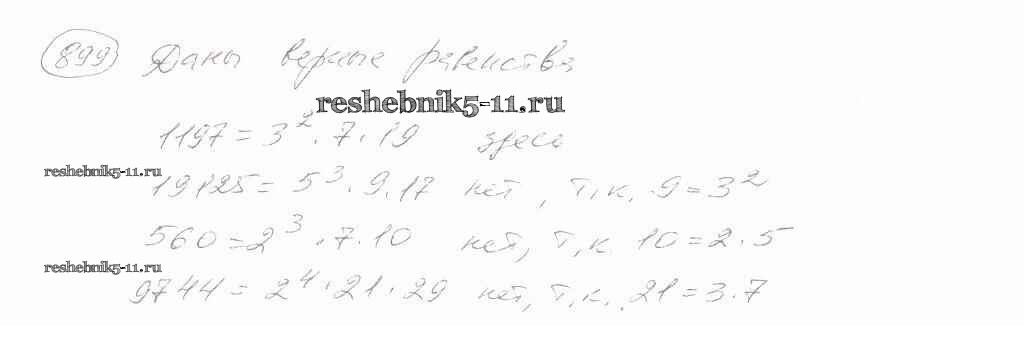 899 Даны верные равенства
reshebnik5-11.ru
1197 = 3² · 7 · 19 здесь
reshebnik5-11.ru
19125 = 5³ · 9 · 17 нет, т.к. 9 = 3²
560 = 2³ · 7 · 10 нет, т.к. 10 = 2 · 5
reshebnik5-11.ru
9744 = 2⁴ · 21 · 29 нет, т.к. 21 = 3 · 7